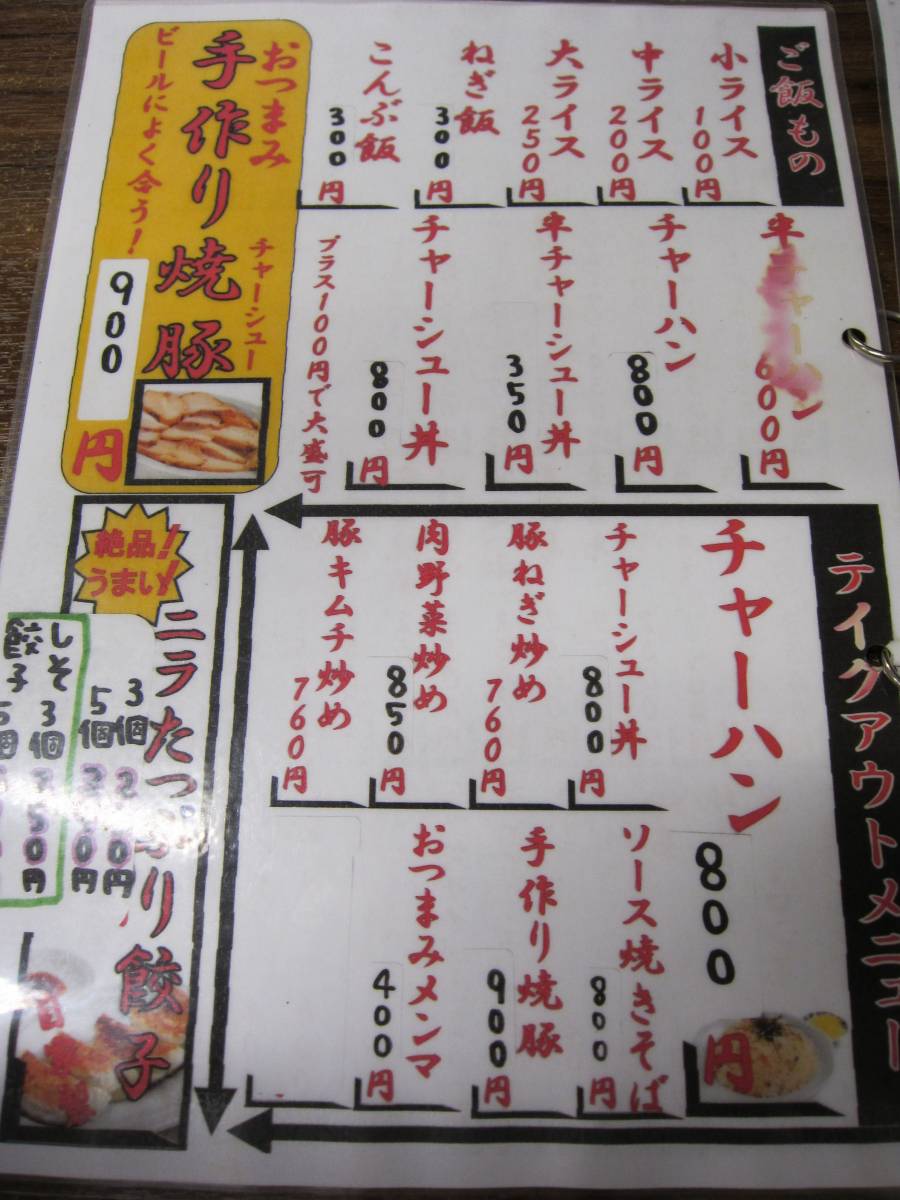 ご飯もの
小ライス
100円
中ライス
200円
大ライス
250円
ねぎ飯
300円
こんぶ飯
300円
半チャーハン
600円
チャーハン
800円
半チャーシュー丼
350円
チャーシュー丼
800円
プラス100円で大盛可
おつまみ
手作り焼豚
チャーシュー
ビールによく合う!
900円
テイクアウトメニュー
チャーハン
800円
チャーシュー丼
800円
豚ねぎ炒め
760円
肉野菜炒め
850円
豚キムチ炒め
760円
ソース焼きそば
800円
手作り焼豚
900円
おつまみメンマ
400円
絶品!
うまい!
ニラたっぷり餃子
3個
5個
しそ
餃子
3個